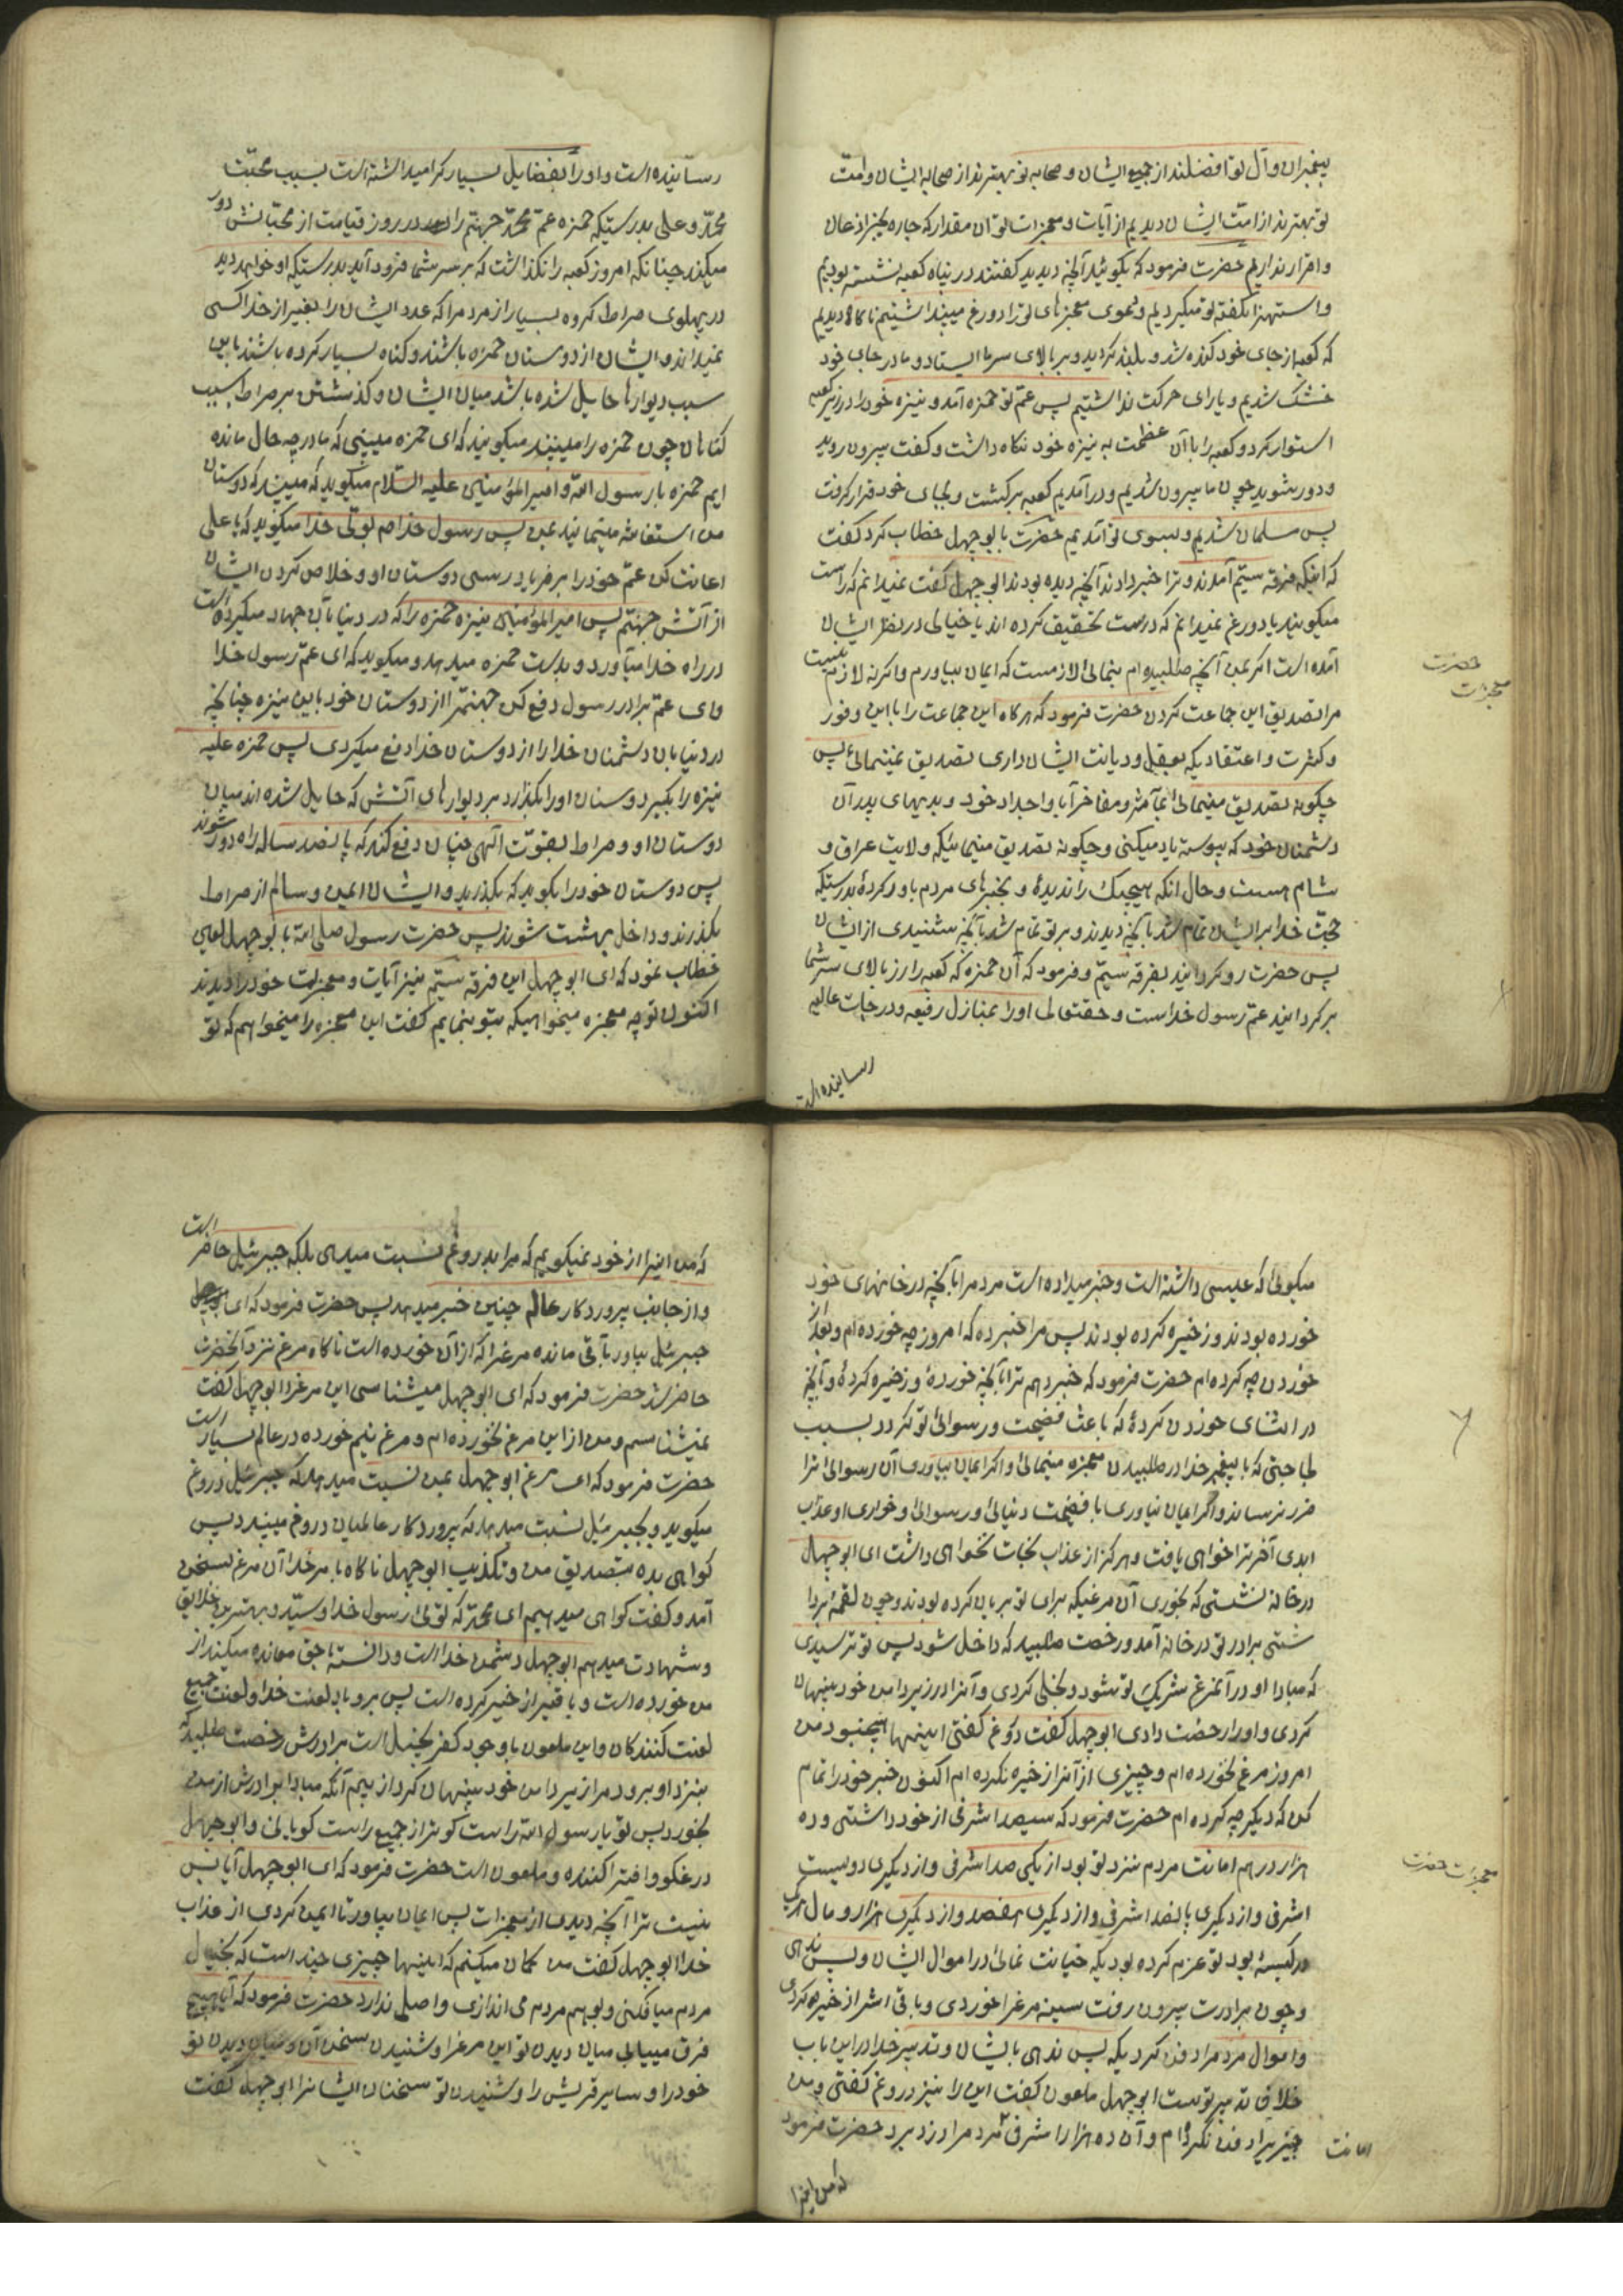 پیغمبران و آل تو افضلند از جمیع ایشان و صحابه تو بهترند از صحابه ایشان و امت
تو بهترند از امت ایشان دیدیم از آیات و معجزات تو آن مقدار که چاره بجز اذعان
و اقرار نداریم حضرت فرمود که بگوئید آنچه دیدید گفتند در پناه کعبه نشسته بودیم
و استهزا بگفته تو میکردیم و دعوی معجزهای ترا دروغ میپنداشتیم ناگاه دیدیم
که کعبه از جای خود کنده شد و بلند گردید و بر بالای سر ما ایستاد و ما در جای خود
خشک شدیم و یارای حرکت نداشتیم پس عم تو حمزه آمد و نیزه خود را در زیر کعبه
استوار کرد و کعبه را با آن عظمت به نیزه خود نگاه داشت و گفت بیرون روید
و دور شوید چون ما بیرون شدیم و در آمدیم کعبه برگشت و بجای خود قرار گرفت
پس مسلمان شدیم و بسوی تو آمدیم حضرت با ابو جهل خطاب کرد گفت
که اینکه فرقه سیّم آمدند و ترا خبر دادند آنچه دیده بودند ابو جهل گفت نمیدانم که راست
میگویند یا دورغ نمیدانم که درست تحقیق کرده اند یا خیالی در نظر ایشان
آمده است اگر بمن آنچه طلبیده ام بنمائی لازمست که ایمان بیاورم و اگرنه لازم نیست
مرا تصدیق این جماعت کردن حضرت فرمود که هرگاه این جماعت را با این وفور
و کثرت و اعتقادیکه بعقل و دیانت ایشان داری تصدیق نمینمائی پس
چگونه تصدیق مینمائی بمآثر و مفاخر آبا و اجداد خود و بدیهای پدران
دشمنان خود که پیوسته یاد میکنی و چگونه تصدیق مینمائیکه ولایت عراق و
شام هست و حال انکه هیچیک را ندیدۀ و بخبرهای مردم باور کردۀ بدرستیکه
حجّت خدا بر ایشان تمام شد بآنچه دیدند و بر تو تمام شد بآنچه شنیدی از ایشان
پس حضرت رو گردانید بفرقه سیّم و فرمود که آن حمزه که کعبه را از بالای سر شما
برگردانید عمّ رسول خداست و حقتعالی او را بمنازل رفیعه و درجات عالیه
رسانیده است
حضرت
معجزات
رسانیده است و او را بفضایل بسیار گرامیداشته است بسبب محبّت
محمّد و علی بدرستیکه حمزه عمّ محمّد جهنّم را در روز قیامت از محبّانش دور
میکند چنانکه امروز کعبه را نگذاشت که بر سر شما فرود آید بدرستیکه او خواهد دید
در پهلوی صراط گروه بسیار از مردم را که عدد ایشان را بغیر از خدا کسی
نمیداند و ایشان از دوستان حمزه باشند و گناه بسیار کرده باشند باین
سبب دیوارها حایل شده باشد میان ایشان و گذشتن بر صراط بسبب
گناهان چون حمزه را میبینند میگویند که ای حمزه میبینی که ما در چه حال مانده
ایم حمزه با رسول الله و امیر المؤمنین علیه السّلام میگوید که میبینید که دوستان
من استغاثه مینمایند بمن پس رسول خدا ص بولّی خدا میگوید که یا علی
اعانت کن عمّ خود را بر فریاد رسی دوستان او و خلاص کردن ایشان
از آتش جهنّم پس امیر المؤمنین نیزه حمزه را که در دنیا بآن جهاد میکرده است
در راه خدا میآورد و بدست حمزه میدهد و میگوید که ای عمّ رسول خدا
و ای عمّ برادر رسول دفع کن جهنّم را از دوستان خود باین نیزه چنانچه
در دنیا بآن دشمنان خدا را از دوستان خدا دفع میکردی پس حمزه علیه
نیزه را بگیرد و سنان او را بگذارد بر دیوارهای آتش که حایل شده اند میان
دوستان او و صراط بقوّت الٓهی چنان دفع کند که پانصد ساله راه دور شوند
پس دوستان خود را بگوید که بگذرید و ایشان ایمن و سالم از صراط
بگذرند و داخل بهشت شوند پس حضرت رسول صلی الله با ابو جهل لعین
خطاب نمود که ای ابو جهل این فرقه سیّم نیز آیات و معجزات خود را دیدند
اکنون تو چه معجزه میخواهیکه بتو بنمایم گفت این معجزه را میخواهم که تو
میگوئی که عیسی داشته است و خبر میداده است مردم را بآنچه در خانهای خود
خورده بودند و زخیره کرده بودند پس مرا خبر ده که امروز چه خورده ام و بعد از
خوردن چه کرده ام حضرت فرمود که خبر دهم ترا بآنچه خوردۀ و زخیره کردۀ و آنچه
در اثنای خوردن کردۀ که باعث فضیحت و رسوائی تو گردد بسبب
لجاجتی که با پیغمبر خدا در طلبیدن معجزه مینمائی و اگر ایمان بیاوری آن رسوائی ترا
ضرر نرساند و اگر ایمان نیاوری با فضیحت دنیائی و رسوائی و خواری او عذاب
ابدی آخر ترا خواهی یافت و هرگز از عذاب نجات نخواهی داشت ای ابو جهل
در خانه نشستی که بخوری آن مرغیکه برای تو بریان کرده بودند و چون لقمه برداشتی
شتی برادر تو در خانه آمد و رخصت طلبید که داخل شود پس تو ترسیدی
که مبادا او در آنمرغ شریک تو شود و بخلی کردی و آنرا در زیر دامن خود پنهان
کردی و او را رخصت دادی ابو جهل گفت دروغ گفتی اینها هیچ نبود من
امروز مرغ نخورده ام و چیزی از آنرا زخیره نکرده ام اکنون خبر خود را تمام
کن که دیگر چه کرده ام حضرت فرمود که سیصد اشرفی از خود داشتی و ده
هزار درهم امانت مردم نزد تو بود از یکی صد اشرفی و از دیگری دویست
اشرفی و از دیگری پانصد اشرفی و از دیگری هفصد و از دیگری هزار و مال هریک
در کیسۀ بود تو عزم کرده بودیکه خیانت نمائی در اموال ایشان و پس ندهی
و چون برادرت بیرون رفت سینه مرغ را خوردی و باقی اشرا زخیره کردی
و اموال مردم را دفن کردیکه پس ندهی بایشان و تدبیر خدا در این باب
خلاف تدبیر توست ابو جهل ملعون گفت این را نیز دروغ گفتی و من
چیزیرا دفن نکرده ام و آن ده هزار اشرفی مردم را دزد برد حضرت فرمود
امانت
که من اینرا
معجزات حضرت
که من اینرا از خود نمیگویم که مرا بدروغ نسبت میدهی بلکه جبرئیل حاضر است
و از جانب پروردگار عالم چنین خبر میدهد پس حضرت فرمود که ای
جبرئیل بیاور باقی مانده مرغرا که از آن خورده است ناگاه مرغ نزد آنحضرت
حاضر شد حضرت فرمود که ای ابو جهل میشناسی این مرغ را ابو جهل گفت
نمیشناسم و من از این مرغ نخورده ام و مرغ نیم خورده در عالم بسیار است
حضرت فرمود که ای مرغ ابو جهل بمن نسبت میدهد که جبرئیل دروغ
میگوید و بجبرئیل نسبت میدهد که بپروردگار عالمیان دروغ میبندد پس
گواهی بده بتصدیق من و تکذیب ابو جهل ناگاه بامر خدا آن مرغ بسخن
آمد و گفت گواهی میدهیم ای محمّد که توئی رسول خدا و سیّد و بهترین خلایق
و شهادت میدهم ابو جهل دشمن خدا است و دانسته با حق معانده میکند از
من خورده است و باقیرا زخیره کرده است پس بر و باد لعنت خدا و لعنت جمیع
لعنت کنندگان و این ملعون با وجود کفر بخیل است برادرش رخصت طلبید که
بنزد او برود مرا زیر دامن خود پنهان کرد از بیم آنکه مبادا برادرش از من
بخورد پس تو یا رسول الله راست گوتر از جمیع راست گویانی و ابو جهل
درغگو و افترا کننده و ملعون است حضرت فرمود که ای ابو جهل آیا بس
نیست ترا آنچه دیدی از معجزات پس ایمان بیاور تا ایمن گردی از عذاب
خدا ابو جهل گفت من گمان میکنم که اینها چیزی چند است که بخیال
مردم میافکنی و بوهم مردم می اندازی و اصلی ندارد حضرت فرمود که آیا هیچ
فرق مییابی میان دیدن تو این مرغ را و شنیدن سخن آن و میان دیدن تو
خود را و سایر قریش را و شنیدن تو سخنان ایشانرا ابو جهل گفت